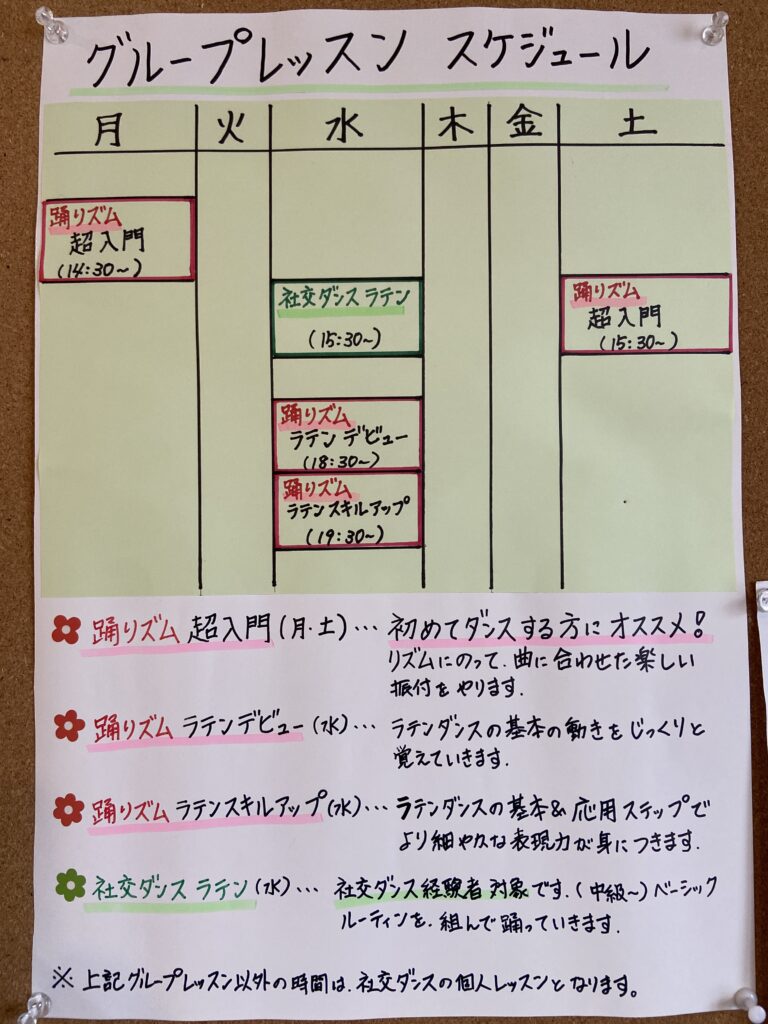 グループレッスン スケジュール
月 火 水 木 金 土
踊りズム
超入門
(14:30〜)
社交ダンス ラテン
(15:30〜)
踊りズム
超入門
(15:30〜)
踊りズム
ラテン デビュー
(18:30〜)
踊りズム
ラテンスキルアップ
(19:30〜)
踊りズム 超入門(月・土)… 初めてダンスする方にオススメ!
リズムにのって、曲に合わせた楽しい
振付をやります.
踊りズム ラテンデビュー(水)… ラテンダンスの基本の動きをじっくりと
覚えていきます.
踊りズム ラテンスキルアップ(水)… ラテンダンスの基本&応用ステップで
より細やかな表現力が身につきます.
社交ダンス ラテン(水)… 社交ダンス経験者対象です.(中級〜)ベーシック
ルーティンを、組んで踊っていきます.
※ 上記グループレッスン以外の時間は、社交ダンスの個人レッスンとなります。